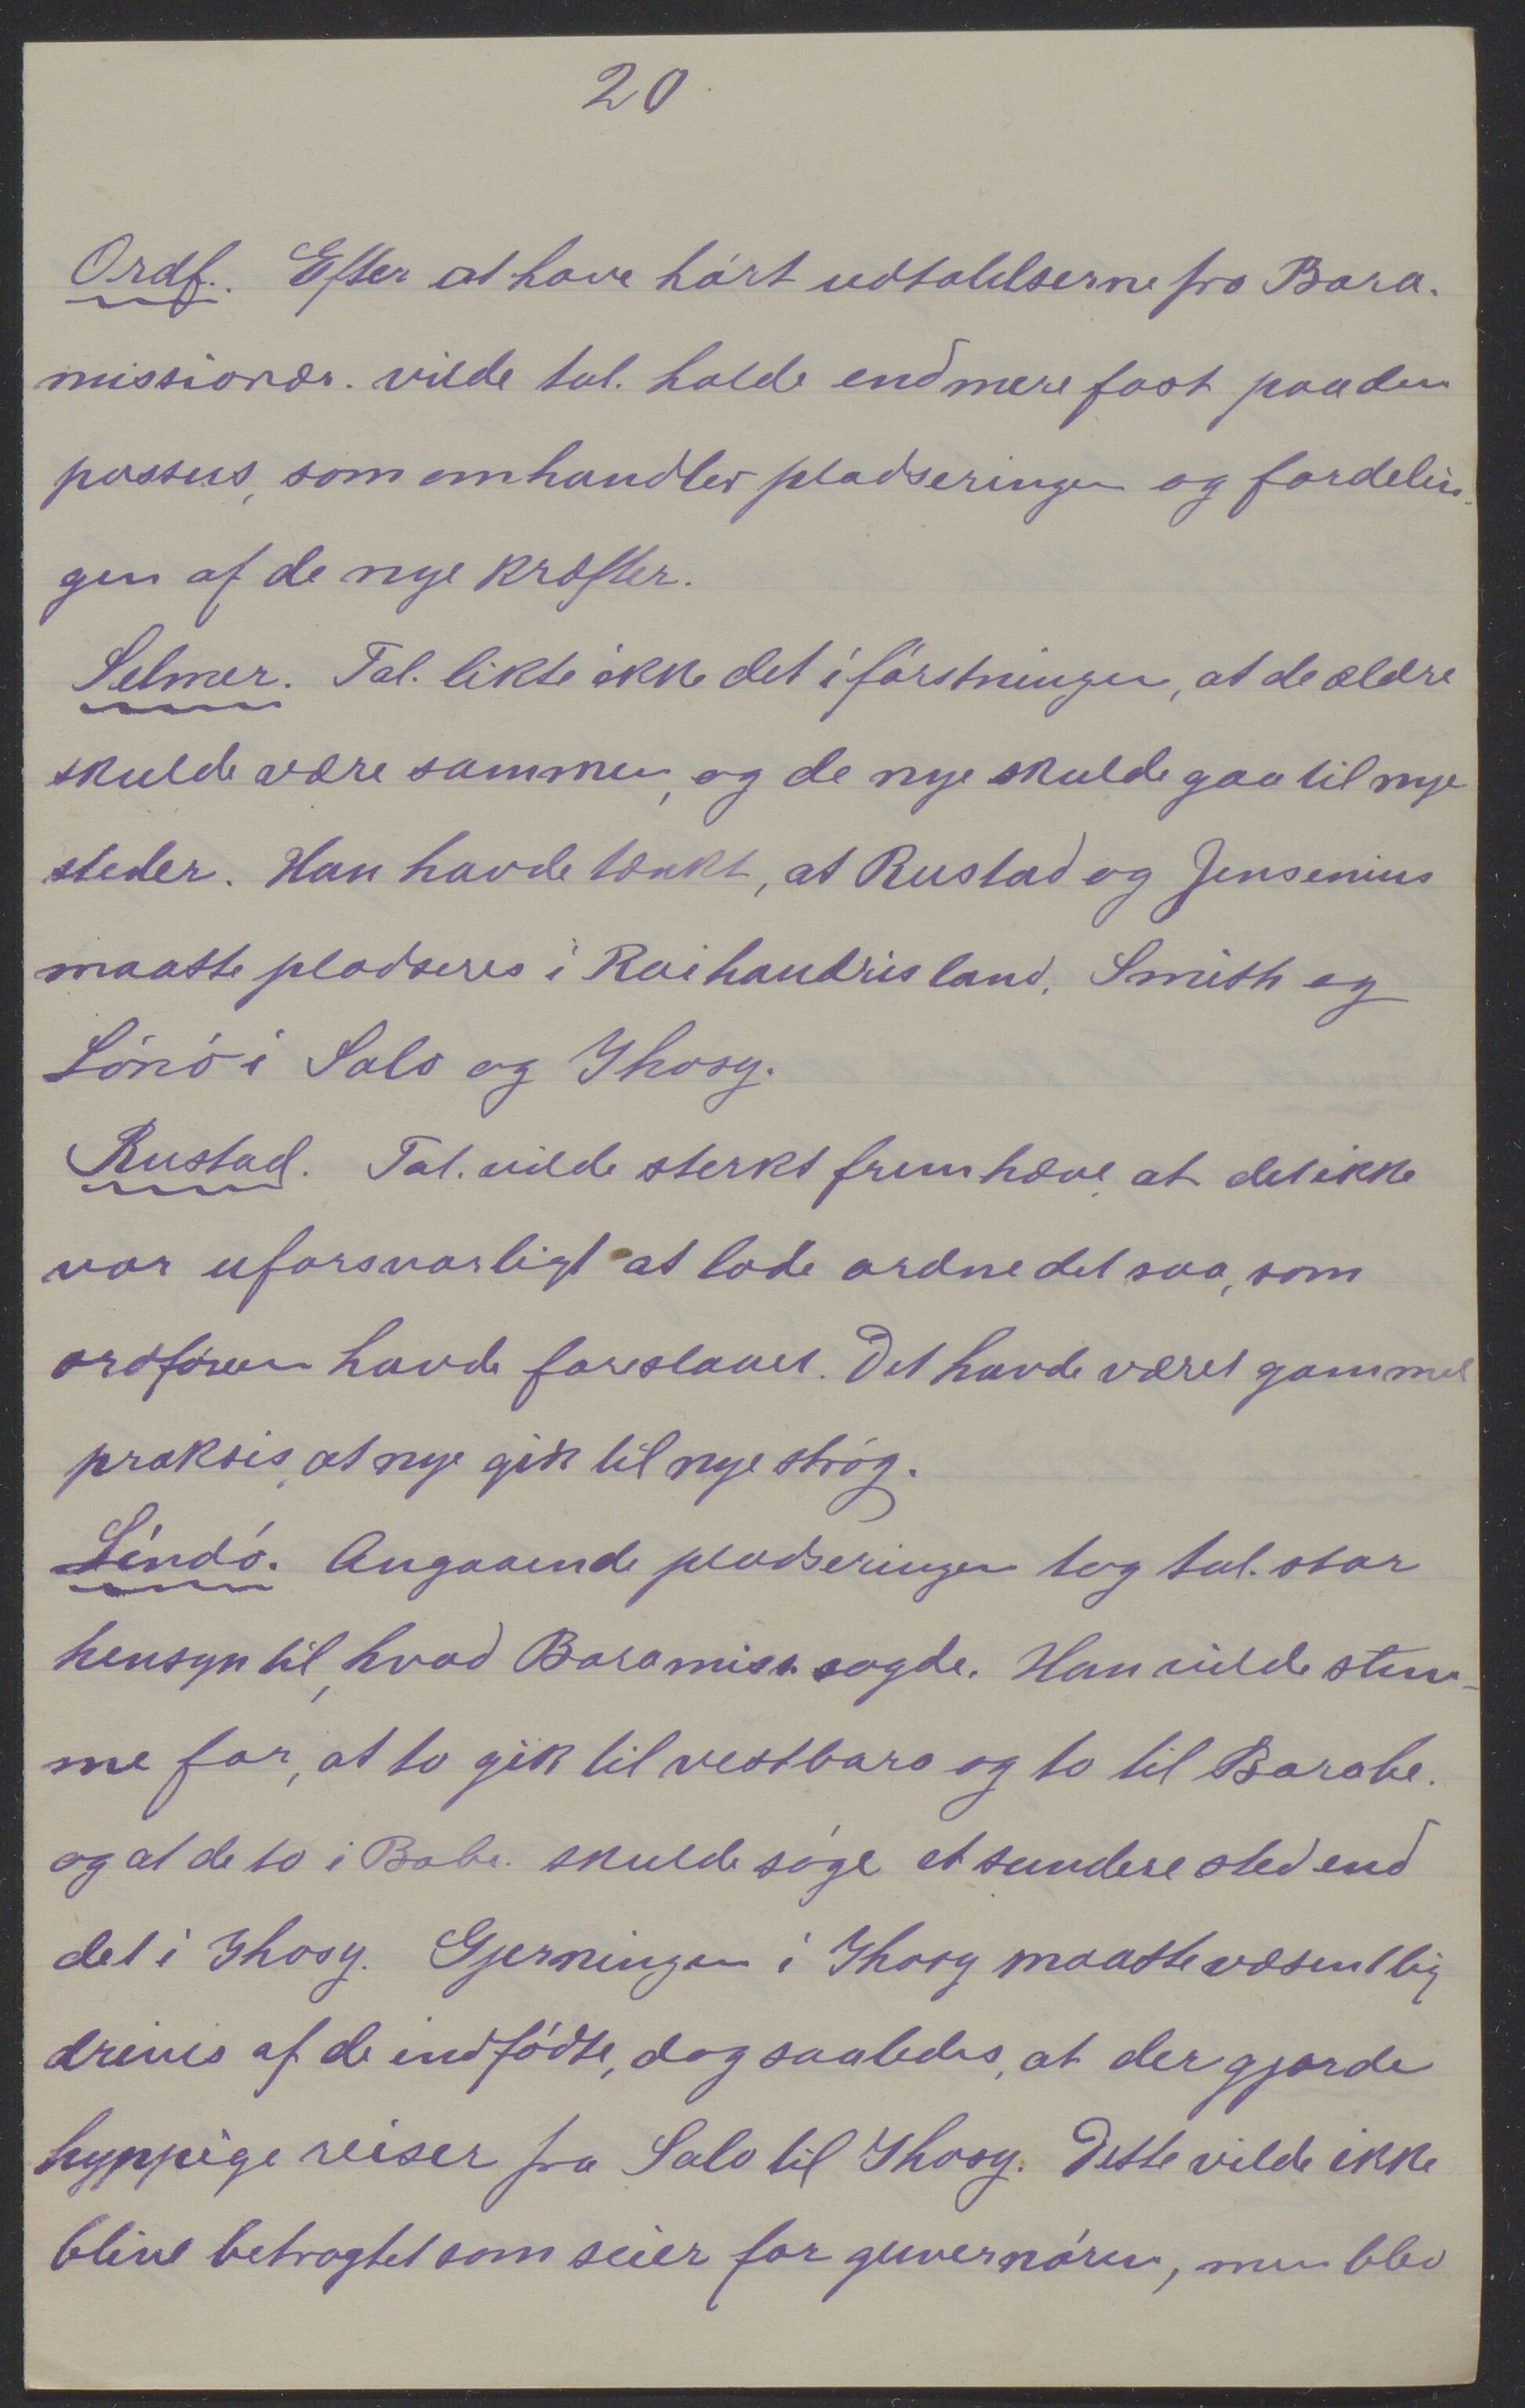 20
Ordf. Efter at have hørt udtalelserne fra Bara-
missionær. vilde tal. holde end mere fast paa den
passus, som omhandler pladseringen og fordelin-
gen af de nye kræfter.
Selmer. Tal. likte ikke det i førstningen, at de ældre
skulde være sammen, og de nye skulde gaa til nye
steder. Han havde tænkt, at Rustad og Jensenius
maatte pladseres i Raihandrisland. Smith og
Lønø i Salo og Ihosy.
Rustad. Tal. vilde sterkt fremhæve, at det ikke
var uforsvarligt at lade ordne det saa, som
ordføreren havde foreslaaet. Det havde været gammel
praksis, at nye gik til nye strøg.
Lindø. Angaaende pladseringen tog tal. stor
hensyn til, hvad Baramiss. sagde. Han vilde stem-
me for, at to gik til vestbara og to til Barabe.
og at de to i Babe. skulde søge et sundere sted end
det i Ihosy. Gjerningen i Ihosy maatte væsentlig
drives af de indfødte, dog saaledes, at der gjorde
hyppige reiser fra Salo til Ihosy. Dette vilde ikke
blive betragtet som seier for guvernøren, men blev